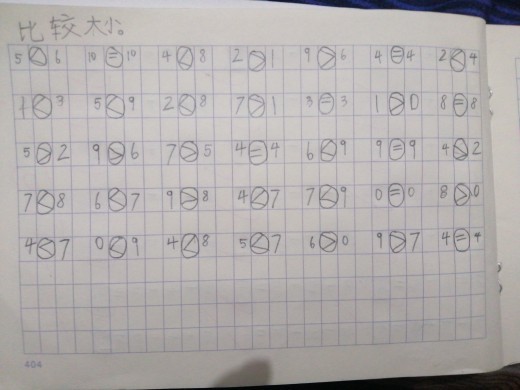 比较大小
5<6 10=10 4<8 2>1 9>6 4=4 2<4
1<3 5<9 2<8 7>1 3=3 1>0 8=8
5>2 9>6 7>5 4=4 6<9 9=9 4>2
7<8 6<7 9>8 4<7 7<9 0=0 8>0
4<7 0<9 4<8 5<7 6>0 9>7 4=4
404